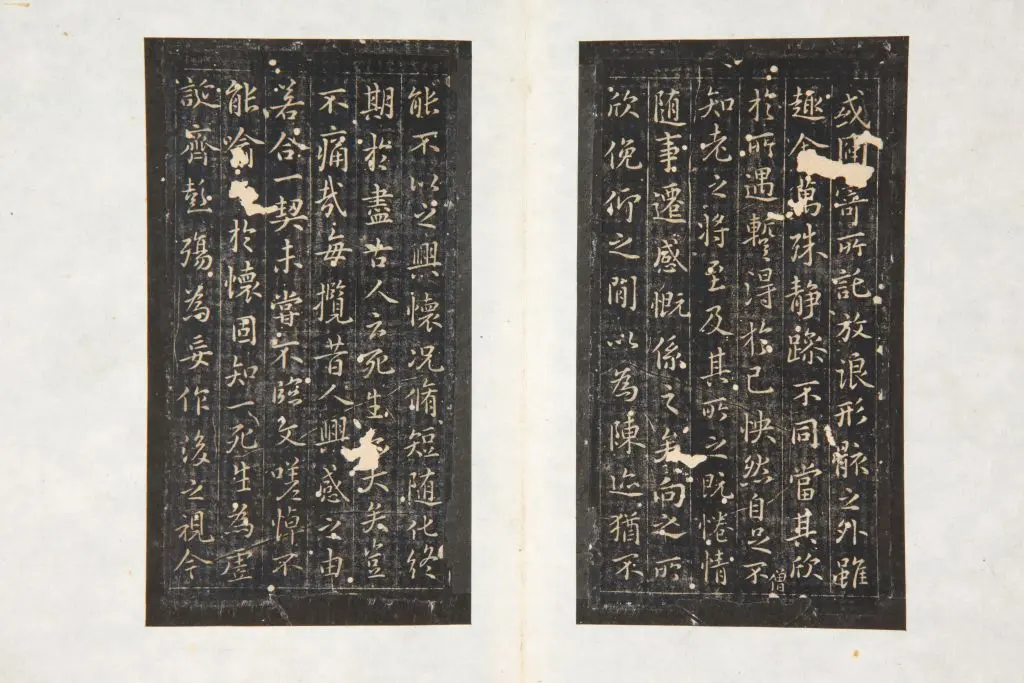 或因寄所託放浪形骸之外雖
趣舍萬殊靜躁不同當其欣
於所遇蹔得於己怏然自足不
僧
知老之將至及其所之既惓情
隨事遷感慨係之矣向之所
欣俛仰之閒以為陳迹猶不
能不以之興懷況脩短隨化終
期於盡古人云死生大矣豈
不痛哉每攬昔人興感之由
若合一契未嘗不臨文嗟悼不
能喻於懷固知一死生為虛
誕齊彭殤為妄作後之視今